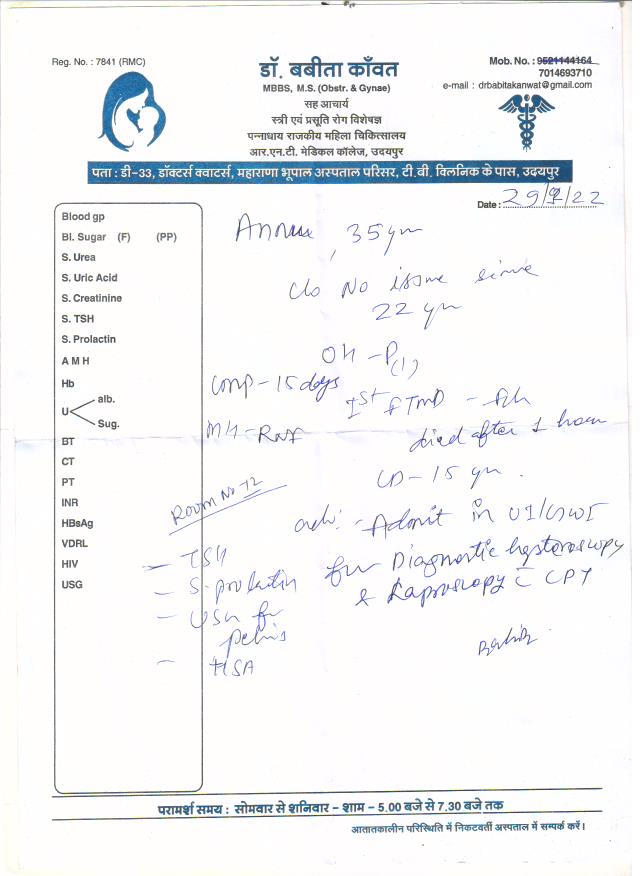 Reg. No. : 7841 (RMC)
डॉ. बबीता काँवत
MBBS, M.S. (Obstr. & Gynae)
सह आचार्य
स्त्री एवं प्रसूति रोग विशेषज्ञ
पन्नाधाय राजकीय महिला चिकित्सालय
आर.एन.टी. मेडिकल कॉलेज, उदयपुर
Mob. No. : 9521144164
7014693710
e-mail : drbabitakanwat@gmail.com
पता : डी-33, डॉक्टर्स क्वाटर्स, महाराणा भूपाल अस्पताल परिसर, टी.बी. क्लिनिक के पास, उदयपुर
Date : 29/ /22
Blood gp
Bl. Sugar (F) (PP)
S. Urea
S. Uric Acid
S. Creatinine
S. TSH
S. Prolactin
A M H
Hb
U alb.
Sug.
BT
CT
PT
INR
HBsAg
VDRL
HIV
USG
, 35 yr
c/o No issue since
22 yr
OH - P(1)
- 15 days
Ist FTND -
died after 1 hour
MH -
LD - 15 yr.
Room No 12
adv: - Admit in
for Diagnostic hysteroscopy
& Laproscopy c̄ CPT
- TSH
- S. prolactin
- USG for
pelvis
- HSA
परामर्श समय : सोमवार से शनिवार - शाम - 5.00 बजे से 7.30 बजे तक
आतातकालीन परिस्थिति में निकटवर्ती अस्पताल में सम्पर्क करें।